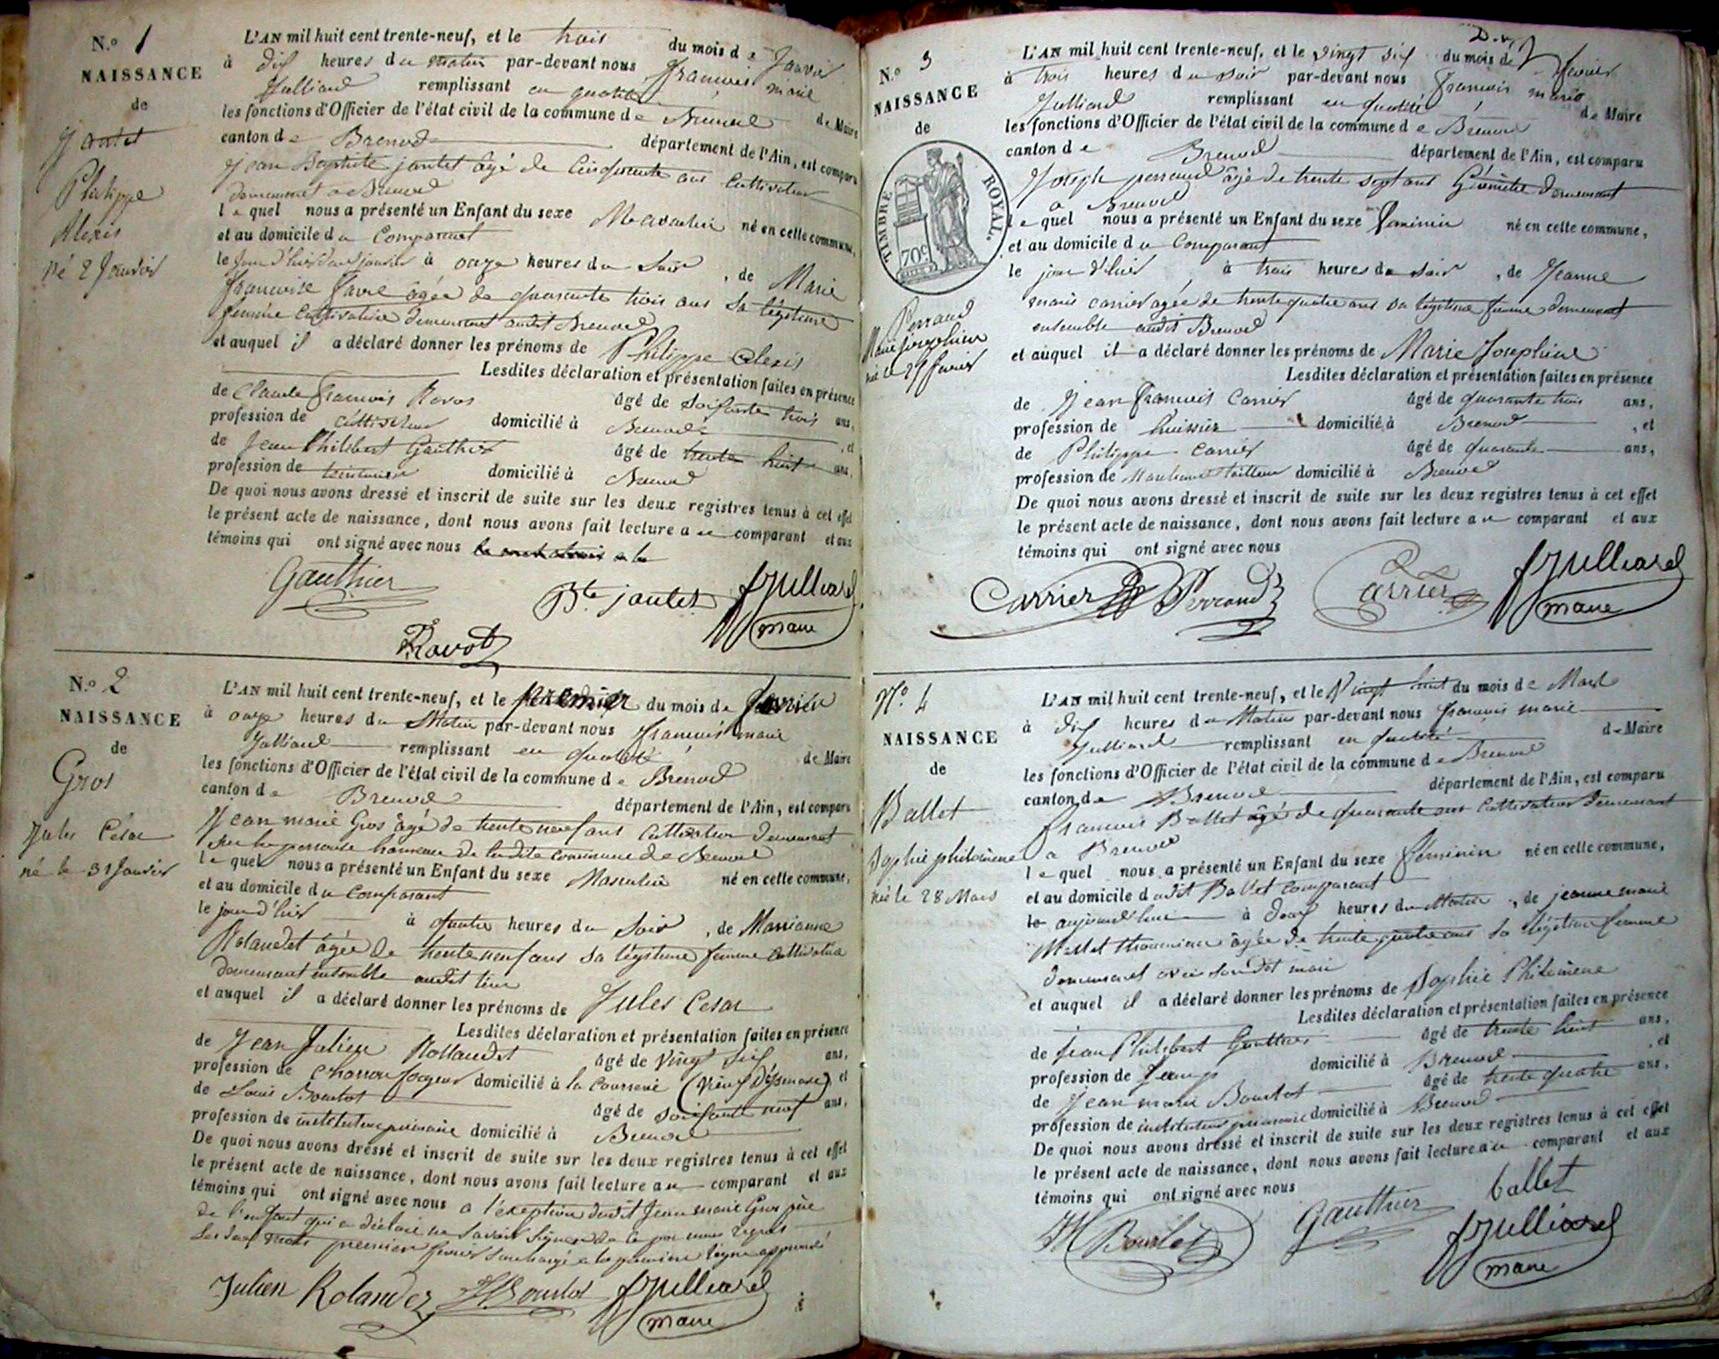 N.º 1
NAISSANCE
de
Jantet
Philippe
Alexis
né 2 Janvier
L'AN mil huit cent trente-neuf, et le trois du mois de Janvier
à dix heures du matin par-devant nous François marie
Julliard remplissant en qualité de Maire
les fonctions d'Officier de l'état civil de la commune de Brenod
canton de Brenod département de l'Ain, est comparu
Jean Baptiste jantet âgé de Cinquante ans Cultivateur
demeurant à Brenod
lequel nous a présenté un Enfant du sexe Masculin né en cette commune,
et au domicile du Comparant
le à onze heures du Soir, de Marie
Françoise favre âgée de quarante trois ans Sa légitime
femme Cultivatrice demeurant audit Brenod
et auquel il a déclaré donner les prénoms de Philippe Alexis
Lesdites déclaration et présentation faites en présence
de Claude François Ravot âgé de Soixante trois ans,
profession de cultivateur domicilié à Brenod, et
de Jean Philibert Gauthier âgé de trente huit ans,
profession de domicilié à Brenod
De quoi nous avons dressé et inscrit de suite sur les deux registres tenus à cet effet
le présent acte de naissance, dont nous avons fait lecture au comparant et aux
témoins qui ont signé avec nous
Gauthier
Bte jantet
fJulliard
maire
Ravot
N.º 2
NAISSANCE
de
Gros
Jules César
né le 31 Janvier
L'AN mil huit cent trente-neuf, et le premier du mois de fevrier
à onze heures du Matin par-devant nous françois marie
Julliard remplissant en qualité de Maire
les fonctions d'Officier de l'état civil de la commune de Brenod
canton de Brenod département de l'Ain, est comparu
Jean marie Gros âgé de trente neuf ans Cultivateur demeurant
hameau de ladite commune de Brenod
lequel nous a présenté un Enfant du sexe Masculin né en cette commune,
et au domicile du Comparant
le jour d'hier à quatre heures du Soir, de Marrianne
Rolandet âgée de trente neuf ans Sa légitime femme Cultivatrice
demeurant ensemble audit lieu
et auquel il a déclaré donner les prénoms de Jules Cesar
Lesdites déclaration et présentation faites en présence
de Jean Julien Rollandet âgé de vingt six ans,
profession de Charron domicilié à la (Vieux d'Izenave) et
de Louis Bourlot âgé de soixante neuf ans,
profession de instituteur primaire domicilié à Brenod
De quoi nous avons dressé et inscrit de suite sur les deux registres tenus à cet effet
le présent acte de naissance, dont nous avons fait lecture au comparant et aux
témoins qui ont signé avec nous a l'exeption dudit Jean marie Gros père
de l'enfant qui a déclaré ne savoir signer de ce par nous requis
Les deux mots premier fevrier surchargé a la première ligne approuvé
Julien Rolandez
Bourlot
fJulliard
maire
N.º 3
NAISSANCE
de
TIMBRE ROYAL.
70c
Perraud
Marie Josephine
née le fevrier
L'AN mil huit cent trente-neuf, et le vingt six du mois de fevrier
à trois heures du soir par-devant nous François marie
Julliard remplissant en qualité de Maire
les fonctions d'Officier de l'état civil de la commune de Brenod
canton de Brenod département de l'Ain, est comparu
Joseph perraud âgé de trente sept ans Géomètre demeurant
a Brenod
lequel nous a présenté un Enfant du sexe feminin né en cette commune,
et au domicile du Comparant
le jour d'hier à trois heures du soir, de Jeanne
marie carrier agée de trente quatre ans sa légitime femme demeurant
ensemble audit Brenod
et auquel il a déclaré donner les prénoms de Marie Josephine
Lesdites déclaration et présentation faites en présence
de Jean François Carrier âgé de quarante trois ans,
profession de huissier domicilié à Brenod, et
de Philippe Carrier âgé de quarante ans,
profession de Marchand tailleur domicilié à Brenod
De quoi nous avons dressé et inscrit de suite sur les deux registres tenus à cet effet
le présent acte de naissance, dont nous avons fait lecture au comparant et aux
témoins qui ont signé avec nous
Carrier
Perraud
Carrier
fJulliard
maire
N.º 4
NAISSANCE
de
Ballet
Sophie philomene
née le 28 Mars
L'AN mil huit cent trente-neuf, et le Vingt huit du mois de Mars
à dix heures du Matin par-devant nous françois marie
Julliard remplissant en qualité de Maire
les fonctions d'Officier de l'état civil de la commune de Brenod
canton de Brenod département de l'Ain, est comparu
francois Ballet âgé de quarante ans Cultivateur demeurant
a Brenod
lequel nous a présenté un Enfant du sexe féminin né en cette commune,
et au domicile dudit Ballet comparant
le aujourd'hui à deux heures du Matin, de jeanne marie
âgée de trente quatre ans sa légitime femme
demeurant avec sondit mari
et auquel il a déclaré donner les prénoms de Sophie Philomene
Lesdites déclaration et présentation faites en présence
de Jean Philibert Gauthier âgé de trente huit ans,
profession de domicilié à Brenod, et
de Jean marie Bourlot âgé de trente quatre ans,
profession de instituteur primaire domicilié à Brenod
De quoi nous avons dressé et inscrit de suite sur les deux registres tenus à cet effet
le présent acte de naissance, dont nous avons fait lecture au comparant et aux
témoins qui ont signé avec nous
Bourlot
Gauthier
ballet
fJulliard
maire